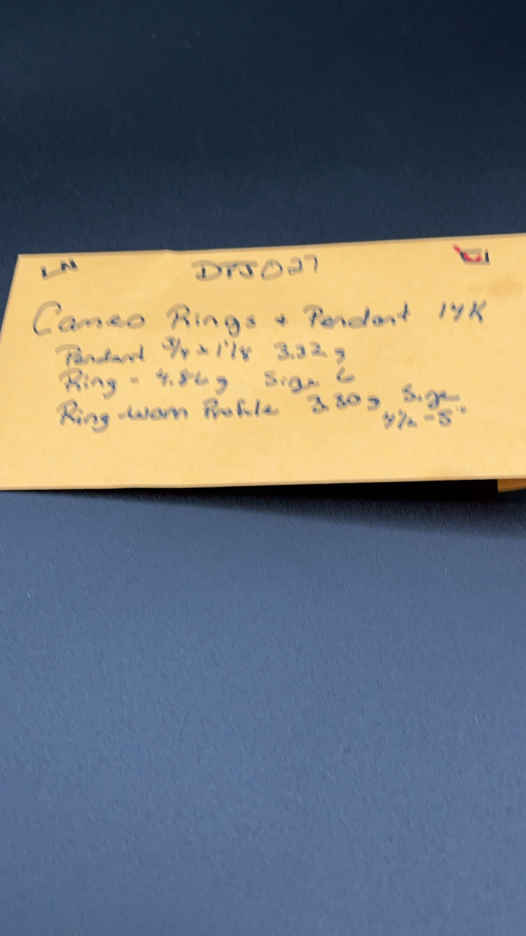 LN DTJ027
Cameo Rings + Pendant 14K
Pendant 1 1/8 3.32 g
Ring - 4.86 g Size 6
Ring-Worn Profile 3.80 g Size
4 1/2 - 5